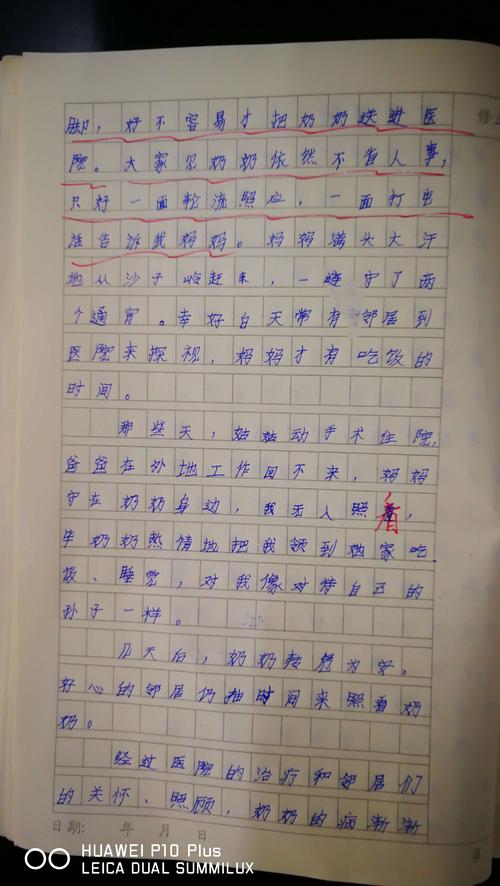 修
脚，好不容易才把奶奶送进医
院。大家见奶奶依然不省人事，
只好一面轮流照应，一面打电
话告诉我妈妈。妈妈满头大汗
地从沙子岭赶来，一连守了两
个通宵。幸好白天常有邻居到
医院来探视，妈妈才有吃饭的
时间。
那些天，姑姑动手术住院，
爸爸在外地工作回不来，妈妈
守在奶奶身边，我无人照看，
牛奶奶热情地把我领到她家吃
饭、睡觉，对我像对待自己的
孙子一样。
几天后，奶奶转危为安。
好心的邻居仍抽时间来照看奶
奶。
经过医院的治疗和邻居们
的关怀、照顾，奶奶的病渐渐
日期： 年 月 日
第
HUAWEI P10 Plus
LEICA DUAL SUMMILUX